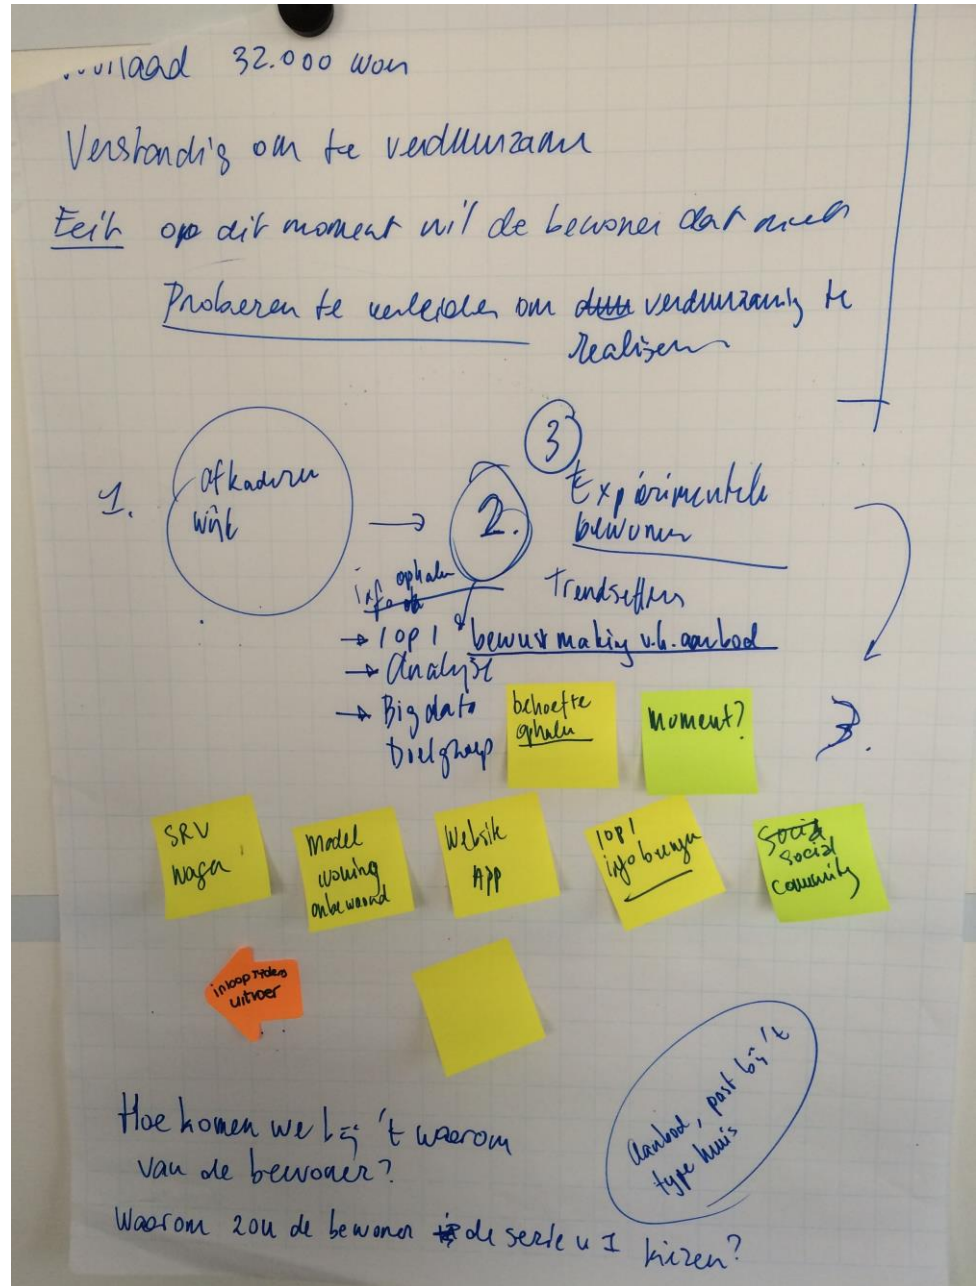 32.000 won
Verstandig om te verduurzamen
Feit op dit moment wil de bewoner dat niet
Proberen te verleiden om verduurzaming te
realiseren
3
1.
afkaderen
wijk
2.
Experimentele
bewoner
info ophalen
Trendsetters
→ 1 op 1
bewustmaking v.h. aanbod
→ Analyse
→ Big data
Doelgroep
behoefte
ophalen
Moment?
3.
SRV
wagen
Model
woning
onbewoond
Website
APP
1 op 1
info brengen
social
community
inloop tijdens
uitvoer
Aanbod, past bij 't
type huis
Hoe komen we bij 't waarom
van de bewoner?
Waarom zou de bewoner de serie u 1 kiezen?